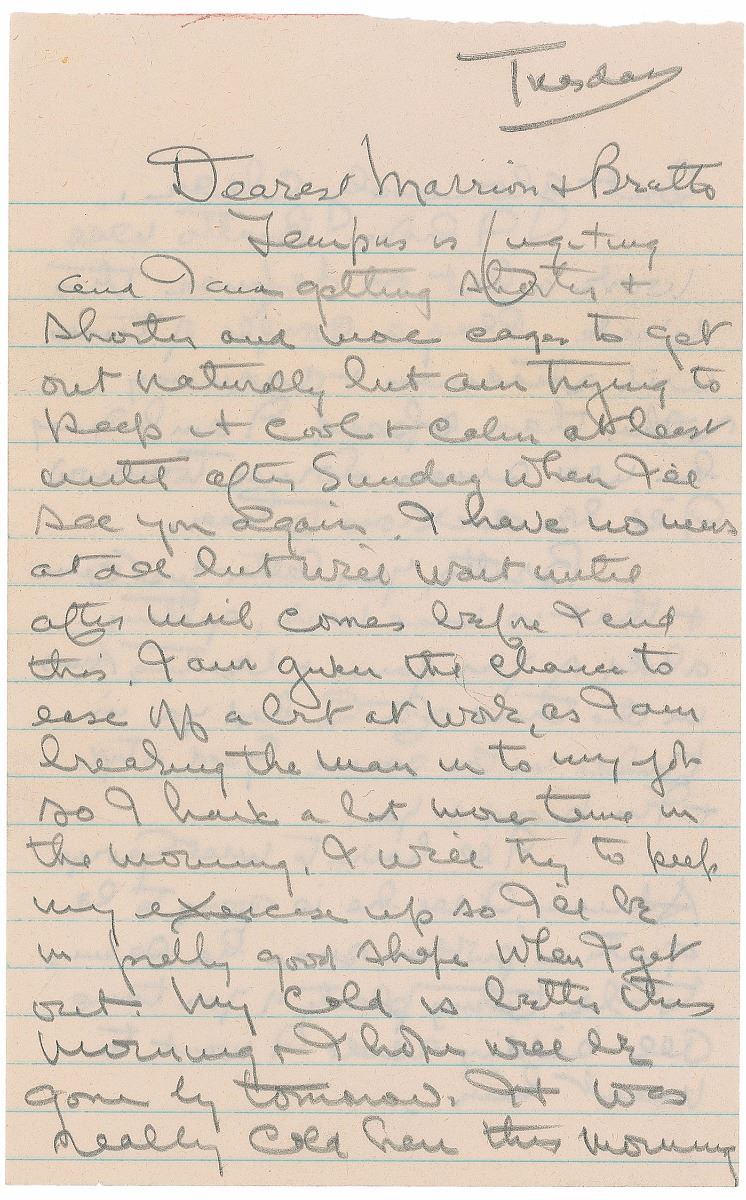 Tuesday
Dearest Marrion & Bratto
Tempus is fugiting
and I am getting shorter &
shorter and more eager to get
out naturally but am trying to
keep it cool & calm at least
until after Sunday when I'll
see you again. I have no news
at all but will wait until
after mail comes before I end
this. I am given the chance to
ease off a bit at work, as I am
breaking the man in to my job
so I have a bit more time in
the morning. I will try to keep
my exercise up so I'll be
in pretty good shape when I get
out. My cold is better this
morning & I hope will be
gone by tomorrow. It was
really cold here this morning